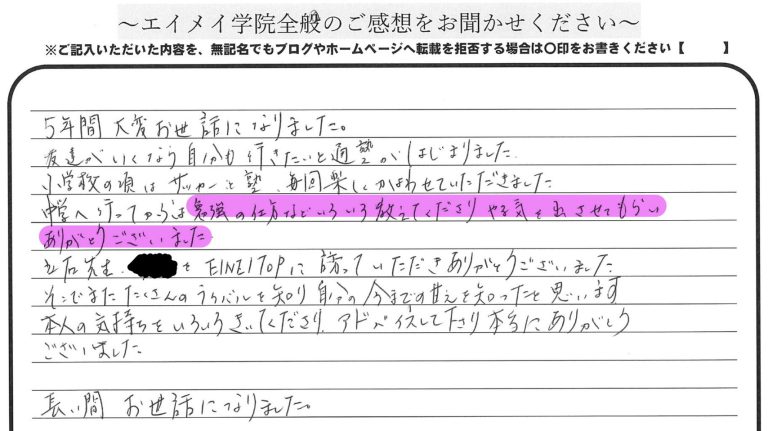 ～エイメイ学院全般のご感想をお聞かせください～
※ご記入いただいた内容を、無記名でもブログやホームページへ転載を拒否する場合は〇印をお書きください【　　】
5年間 大変お世話になりました。
友達がいくなら自分も行きたいと通塾がはじまりました
小学校の頃はサッカーと塾、毎回楽しくかよわせていただきました
中学へ行ってからは勉強の仕方などいろいろ教えてくださり やる気を出させてもらい
ありがとうございました
先生、 を EINEITOPに誘っていただきありがとうございました
そこでまた たくさんのライバルを知り 自分の今までの甘えを知ったと思います
本人の気持ちをいろいろきいてくださり、アドバイスして下さり本当にありがとう
ございました
長い間 お世話になりました。